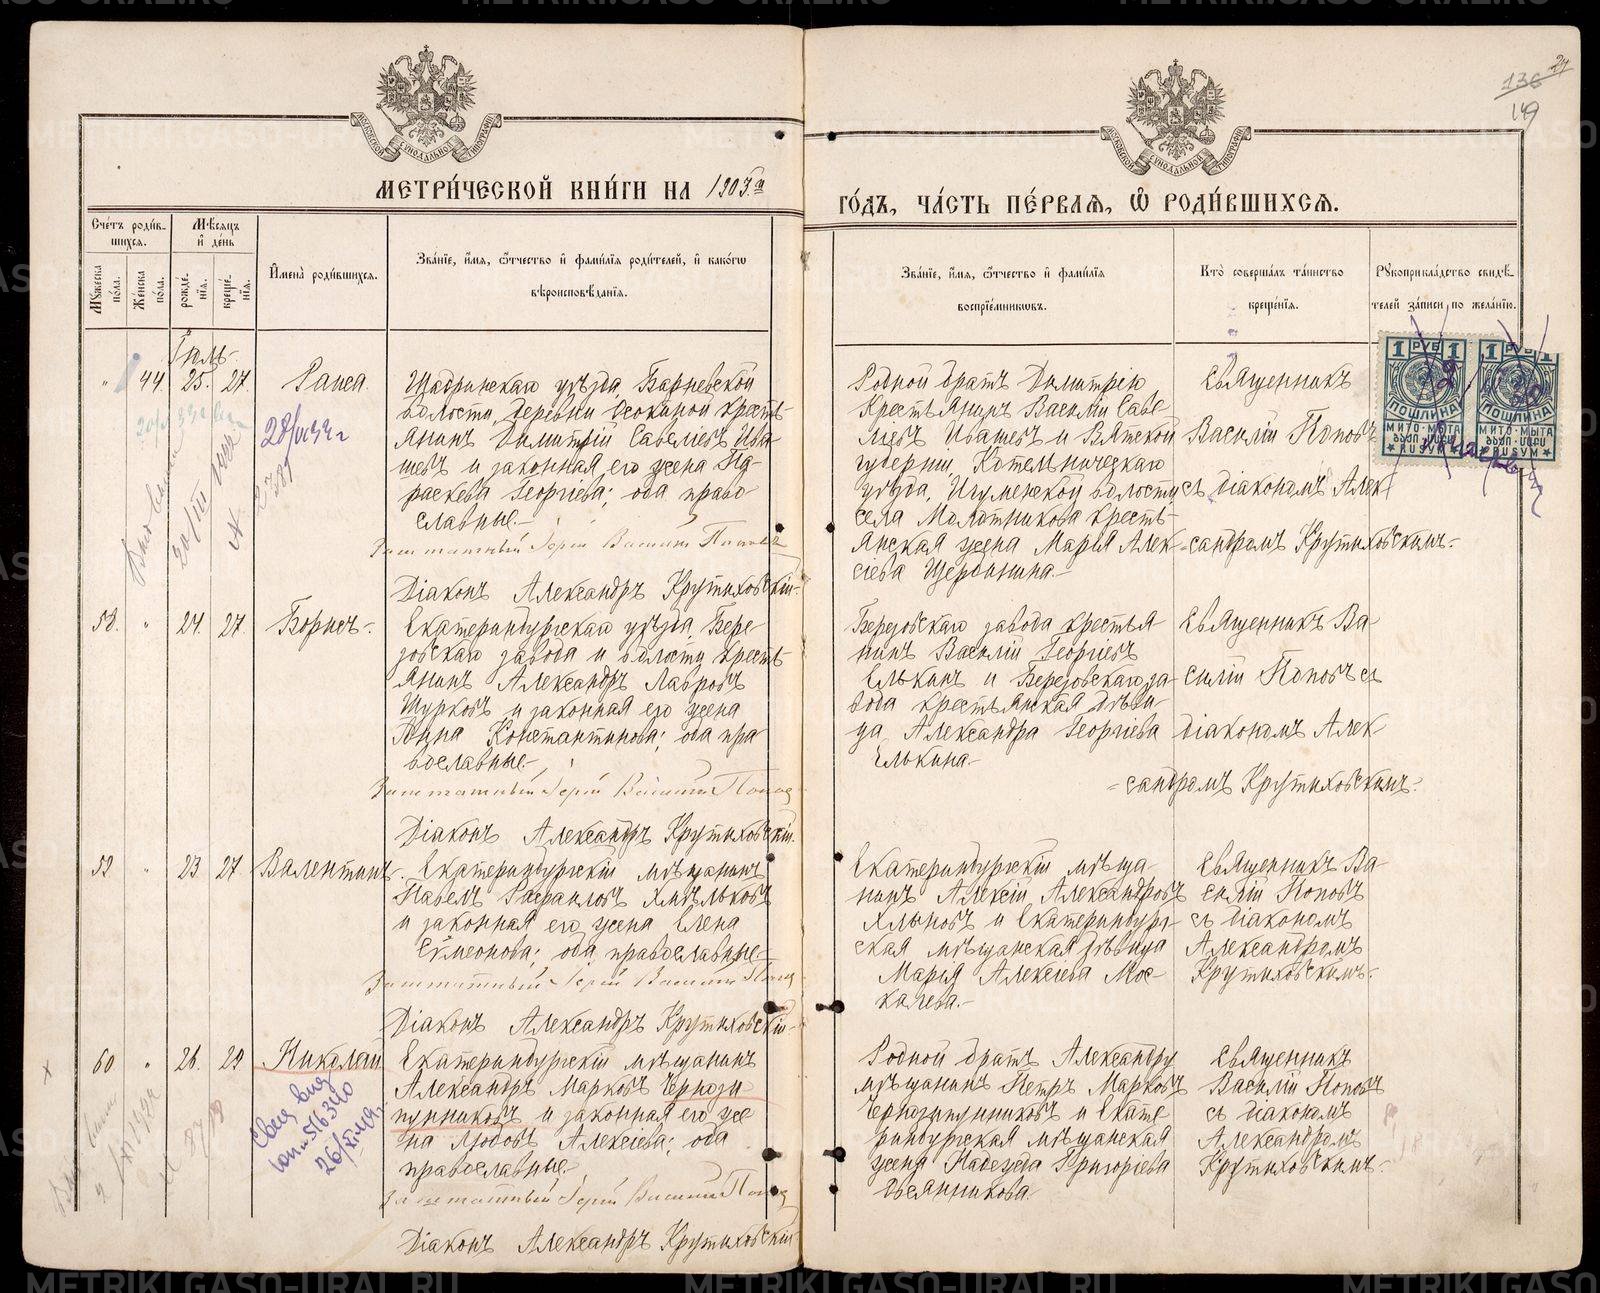 136 24
149
МЕТРИ́ЧЕСКОЙ КНИ́ГИ НА 1903.й
ГО́ДЪ, ЧА́СТЬ ПЕ́РВАѦ, Ѽ РОДИ́ВШИХСѦ.
Сче́тъ роди́вшихсѧ.
Мꙋ́жеска по́ла.
Же́нска по́ла.
Мѣ́сѧцъ и҆ де́нь
рожде́нїѧ.
креще́нїѧ.
И҆мена̀ роди́вшихсѧ.
Зва́нїе, и҆́мѧ, ѻ҆́тчество и҆ фами́лїѧ роди́телей, и҆ како́гѡ
вѣроисповѣ́данїѧ.
Зва́нїе, и҆́мѧ, ѻ҆́тчество и҆ фами́лїѧ
воспрїе́мникѡвъ.
Кто̀ соверша́лъ та́инство
креще́нїѧ.
Рꙋкоприкла́дство свидѣ́
телей за́писи по жела́нїю.
Іюль
" 44. 25. 27. Раиса.
Шадринскаго уѣзда, Барневской
волости, деревни Осокиной кресть-
янинъ Димитрій Савеліевъ Ива-
шевъ и законная его жена Па-
раскева Георгіева; оба право-
славные.
Заштатный Іерей Василій Поповъ
Діаконъ Александръ Крутиховскій.
Родной братъ Димитрію
крестьянинъ Василій Саве-
ліевъ Ивашевъ и Вятской
губерніи, Котельническаго
уѣзда, Игуменской волости
села Молотникова кресть-
янская жена Марія Алек-
сіева Щербинина.
Священникъ
Василій Поповъ
съ діакономъ Алек-
сандромъ Крутиховскимъ.
1 РУБ 1
ПОШЛИНА
1 РУБ 1
ПОШЛИНА
28/
2781
58. " 24. 27. Борисъ.
Екатеринбургскаго уѣзда, Бере-
зовскаго завода и волости кресть-
янинъ Александръ Лавровъ
Шурковъ и законная его жена
Анна Константинова; оба пра-
вославные.
Заштатный Іерей Василій Попов
Діаконъ Александръ Крутиховскій.
Березовскаго завода крестья-
нинъ Василій Георгіевъ
Елькинъ и Березовскаго за-
вода крестьянская дѣви-
ца, Александра Георгіева
Елькина.
Священникъ Ва-
силій Поповъ съ
діакономъ Алек-
сандромъ Крутиховскимъ.
59 " 23 27 Валентинъ.
Екатеринбургскій мѣщанинъ
Павелъ Рафаиловъ Хмѣльковъ
и законная его жена Елена
Сѵмеонова; оба православные.
Заштатный Іерей Василій Попов
Діаконъ Александръ Крутиховскій
Екатеринбургскій мѣща-
нинъ Алексій Александровъ
Хлыновъ и Екатеринбург-
ская мѣщанская дѣвица
Марія Алексіева Мос-
калева.
Священникъ Ва-
силій Поповъ
съ діакономъ
Александромъ
Крутиховскимъ.
60 " 26. 29 Николай
Екатеринбургскій мѣщанинъ
Александръ Марковъ Чернози-
пунниковъ и законная его же-
на Любовь Алексіева; оба
православные.
Заштатный Іерей Василій Попов
Діаконъ Александръ Крутиховскій
Родной братъ Александру
мѣщанинъ Петръ Марковъ
Чернозипунниковъ и Екате-
ринбургская мѣщанская
жена Надежда Григоріева
Овсянникова.
Священникъ
Василій Поповъ
съ діакономъ
Александромъ
Крутиховскимъ.
METRIKI.GASO-URAL.RU